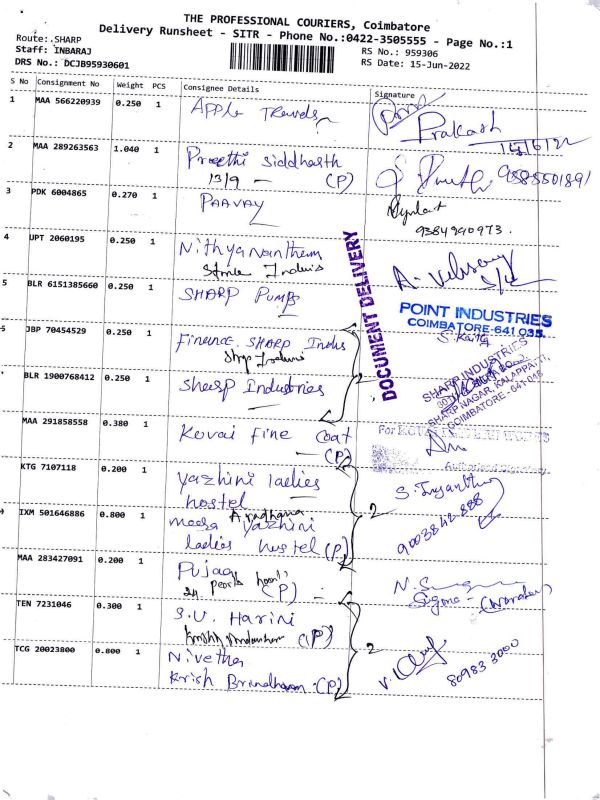 THE PROFESSIONAL COURIERS, Coimbatore
Delivery Runsheet - SITR - Phone No.:0422-3505555 - Page No.:1
Route: SHARP
Staff: INBARAJ
DRS No.: DCJB95930601
RS No.: 959306
RS Date: 15-Jun-2022
S No Consignment No Weight PCS Consignee Details Signature
1 MAA 566220939 0.250 1 Apple Travels
Prakash
15/6/22
2 MAA 289263563 1.040 1 Preethi siddharth
13/9 - (P)
9585501891
3 PDK 6004865 0.270 1 PAAVAY
9384990973.
4 UPT 2060195 0.250 1 Nithyanantham
DOCUMENT DELIVERY
5 BLR 6151385660 0.250 1 SHARP PUMPS
POINT INDUSTRIES
COIMBATORE-641 035.
JBP 70454529 0.250 1 Finance SHARP Indus
BLR 1900768412 0.250 1 Sharp Industries
2
SHARP INDUSTRIES
SHARP NAGAR, KALAPPATTI,
COIMBATORE - 641 048
MAA 291858558 0.380 1 Kovai Fine Coat
(P)
For
KTG 7107118 0.200 1 Yazhini ladies
hostel
IXM 501646886 0.800 1 Aradhana
meera Yazhini
ladies hostel (P)
2
9003842888
MAA 283427091 0.200 1 Pujaa
(P)
N.S
Sigma
TEN 7231046 0.300 1 S.U. Harini
(P)
TCG 20023800 0.800 1 Nivetha
Krish Brindhavan (P)
2
80983 3000